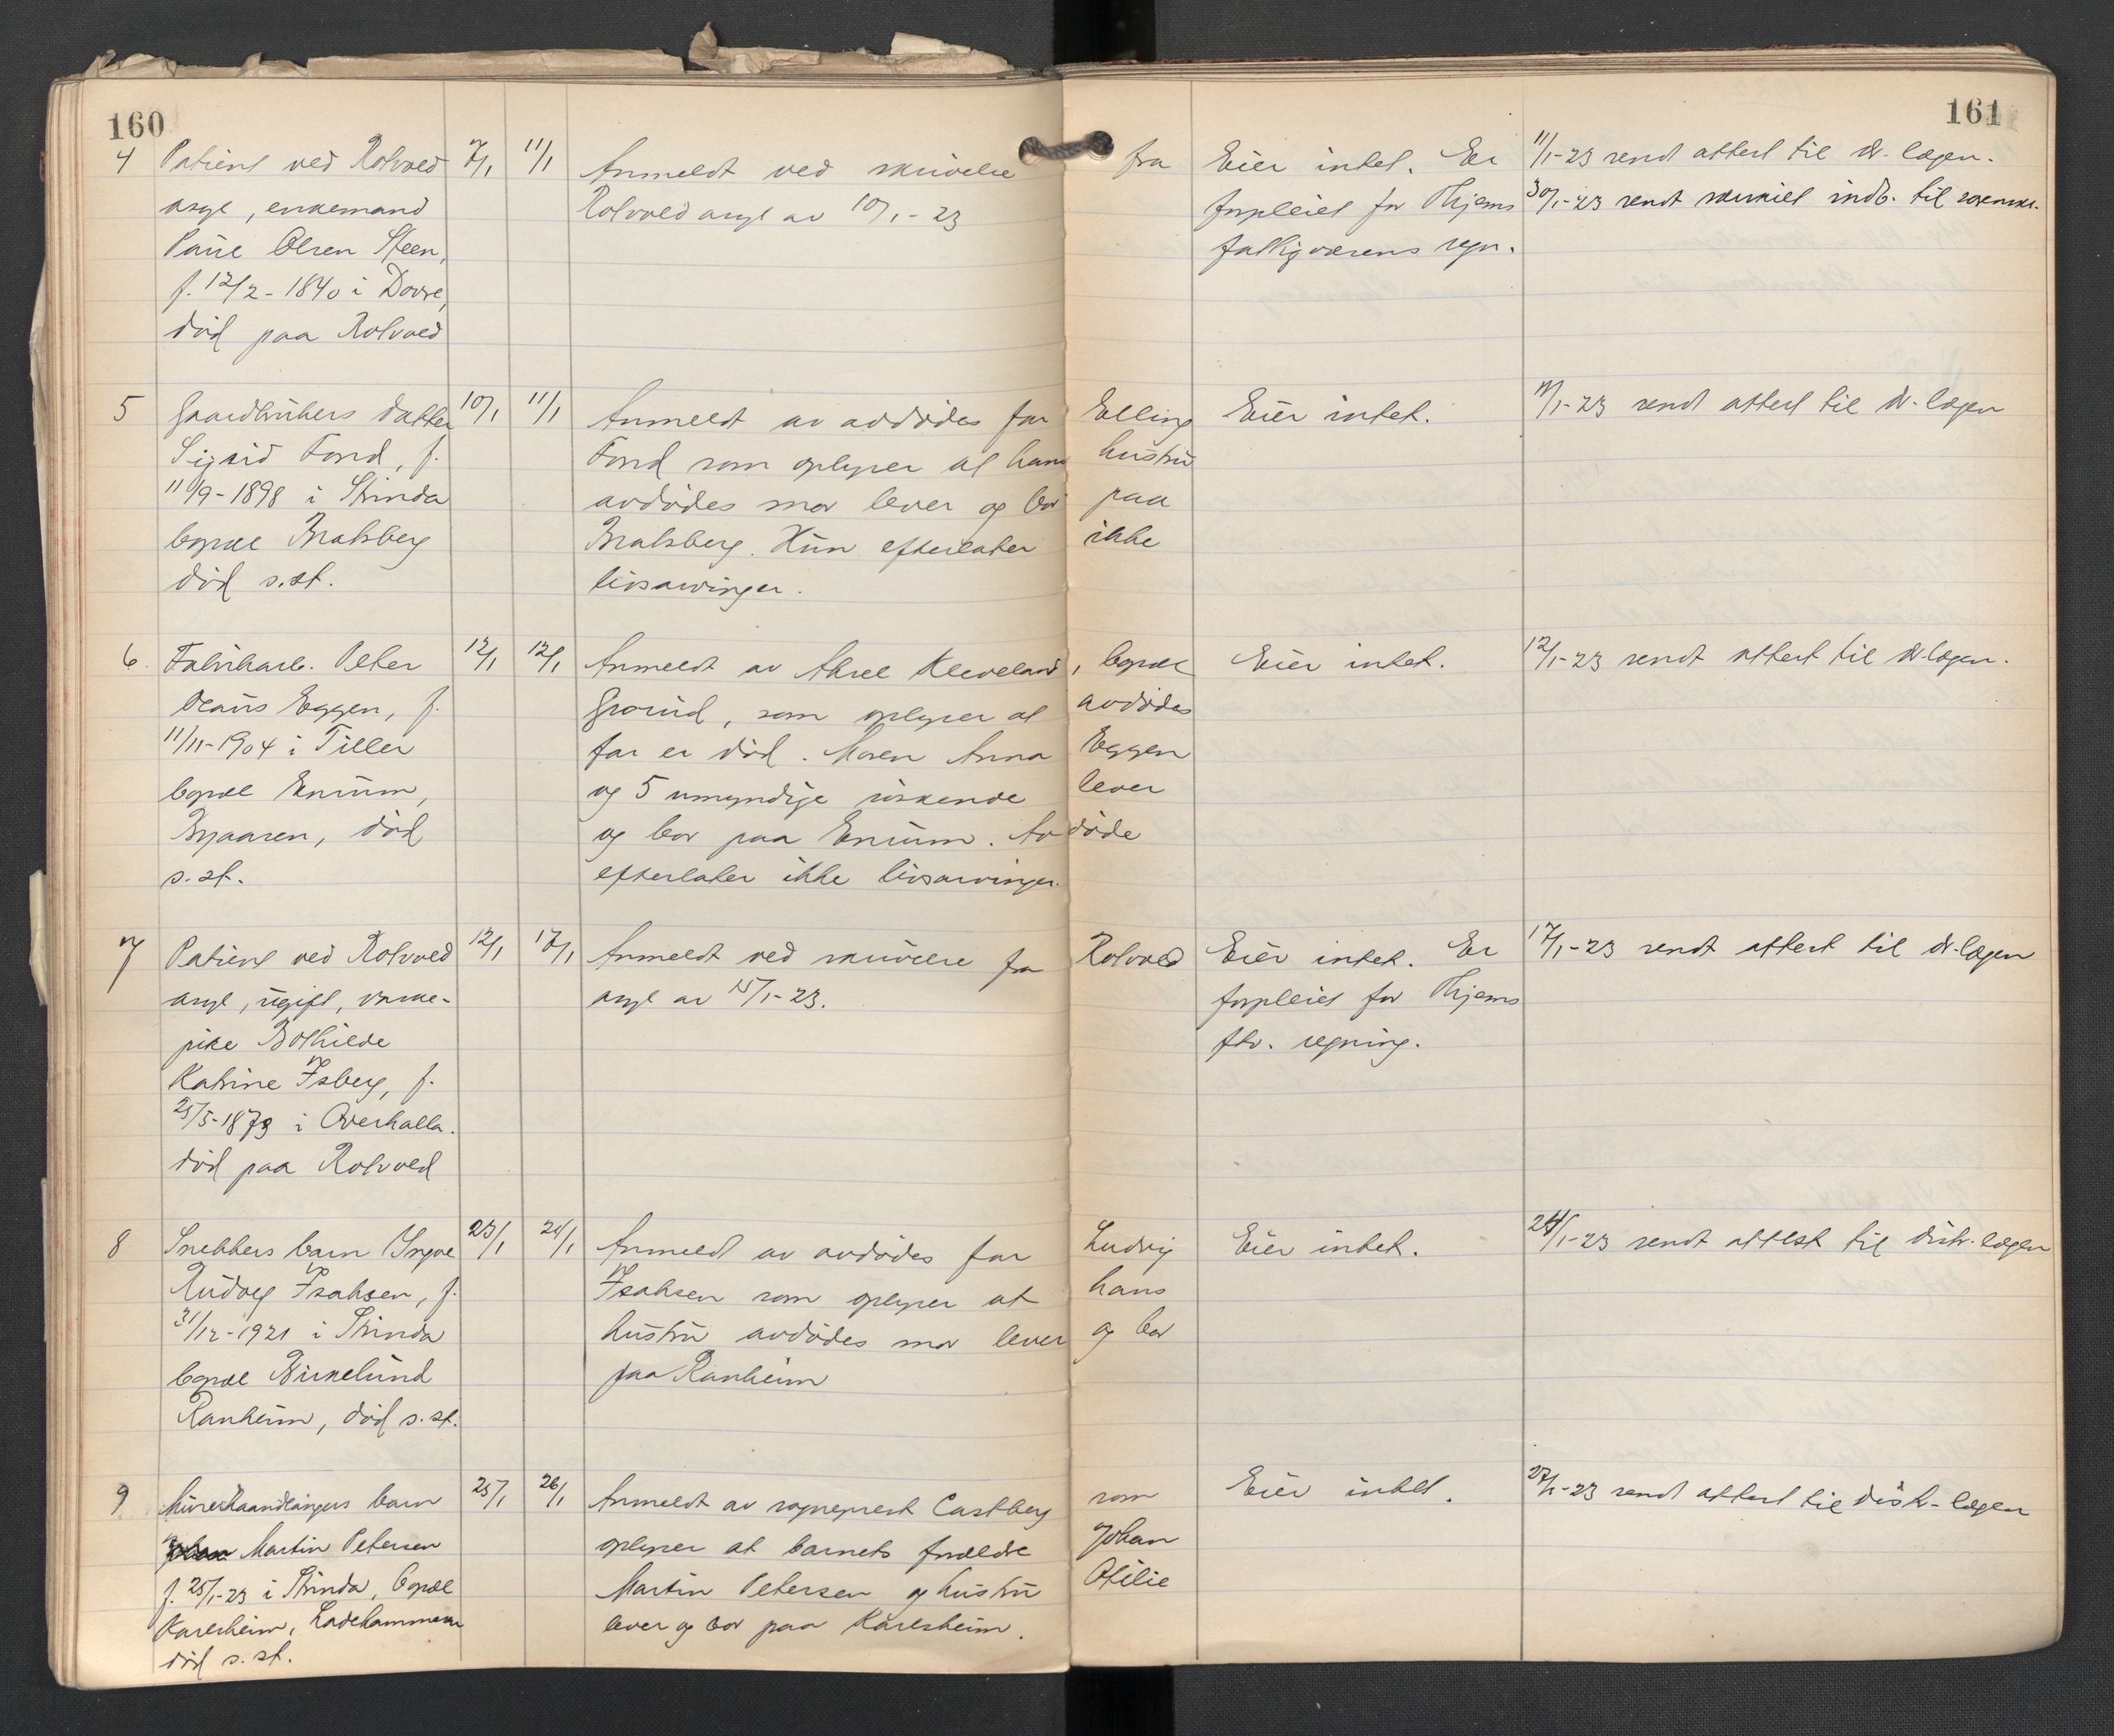 160
161
4 Patient ved Rotvoed 7/1 11/1 Anmeldt ved skrivelse fra Eier intet. Er 11/1-23 sendt attest til d-lægen.
asyl, enkemand Rotvoed asyl av 10/1-23 forpleiet for Hjems 30/1-23 sendt skriftl indb. til sorenskr.
Paul Olsen Steen, fattigvæsens regn.
f. 12/2-1840 i Dovre,
död paa Rotvoed
5 Gaardbrukers datter 10/1 11/1 Anmeldt av avdödes far Elling Eier intet. 11/1-23 sendt attest til d-lægen
Sigrid Tond, f. Tond som oplyser at hans hustru
11/9-1898 i Strinda avdödes mor lever og bor paa
bopæl Bratsberg Bratsberg. Hun efterlater ikke
död s.st. livsarvinger.
6. Fabrikarb. Peter 12/1 12/1 Anmeldt av Aksel Kleveland, bopæl Eier intet. 12/1-23 sendt attest til d-lægen.
Oeaus Eggen, f. Grorud, som oplyser at avdödes
11/11-1904 i Tiller far er död. Moren Anna Eggen
bopæl Enrum, og 5 umyndige söskende lever
Bjaaren, död og bor paa Enrum. Avdöde
s.st. efterlater ikke livsarvinger.
7 Patient ved Rotvoed 12/1 17/1 Anmeldt ved skrivelse fra Rotvoed Eier intet. Er 17/1-23 sendt attest til d-lægen
asyl, ugift, vaske- asyl av 15/1-23. forpleiet for Hjems
pike Bothilde ftv. regning.
Katrine Isberg, f.
25/5-1879 i Overhalla.
död paa Rotvoed
8 Snekkers barn Yngve 23/1 24/1 Anmeldt av avdödes far Ludvig Eier intet. 24/1-23 sendt attest til distr. lægen
Rudolf Isaksen, f. Isaksen som oplyser at hans
31/12-1921 i Strinda hustru avdödes mor lever og bor
bopæl Birkelund paa Ranheim
Ranheim, död s.st.
9 Murerhaandlangers barn 25/1 26/1 Anmeldt av sogneprest Castberg som Eier intet. 27/1-23 sendt attest til distr-lægen
Johan Martin Petersen oplyser at barnets forældre Johan
f. 25/1-23 i Strinda, bopæl Martin Petersen og hustru Otilie
Karlsheim, Ladehammeren lever og bor paa Karlsheim.
död s.st.